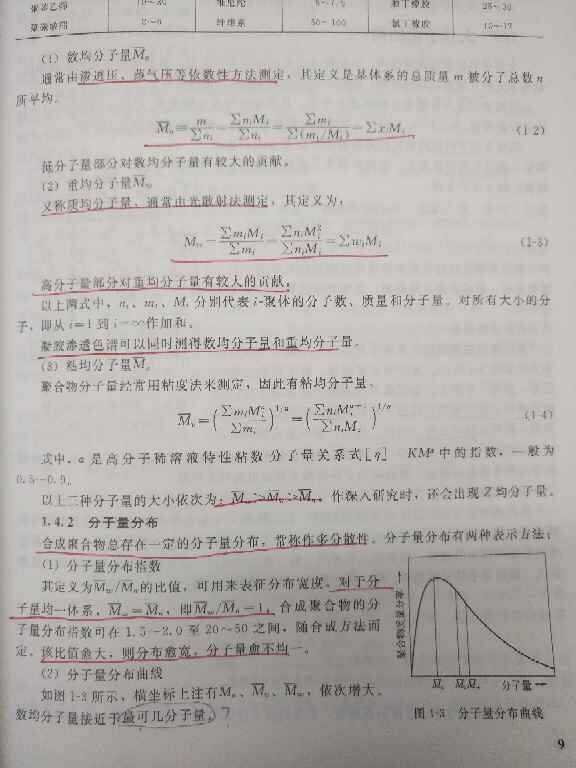 聚氯乙烯 维尼纶 顺丁橡胶 25~30
聚碳酸酯 2~6 纤维素 50~100 氯丁橡胶 10~12
(1) 数均分子量M̄n
通常由渗透压、蒸气压等依数性方法测定，其定义是某体系的总质量 m 被分子总数 n
所平均。
M̄n = m/∑ni = ∑niMi/∑ni = ∑mi/∑(mi/Mi) = ∑xiMi (1-2)
低分子量部分对数均分子量有较大的贡献。
(2) 重均分子量M̄w
又称质均分子量，通常由光散射法测定，其定义为：
M̄w = ∑miMi/∑mi = ∑niMi²/∑niMi = ∑wiMi (1-3)
高分子量部分对重均分子量有较大的贡献。
以上两式中，ni、mi、Mi 分别代表 i-聚体的分子数、质量和分子量。对所有大小的分
子，即从 i=1 到 i=∞作加和。
凝胶渗透色谱可以同时测得数均分子量和重均分子量。
(3) 粘均分子量M̄v
聚合物分子量经常用粘度法来测定，因此有粘均分子量。
M̄v = (∑miMiα/∑mi)1/α = (∑niMiα+1/∑niMi)1/α (1-4)
式中，α 是高分子稀溶液特性粘数-分子量关系式[η]=KMα 中的指数，一般为
0.5~0.9。
以上三种分子量的大小依次为：M̄w>M̄v>M̄n。作深入研究时，还会出现 Z均分子量。
1.4.2 分子量分布
合成聚合物总存在一定的分子量分布，常称作多分散性。分子量分布有两种表示方法：
(1) 分子量分布指数
其定义为M̄w/M̄n的比值，可用来表征分布宽度。对于分
子量均一体系，M̄w=M̄n，即M̄w/M̄n=1。合成聚合物的分
子量分布指数可在 1.5~2.0 至 20~50 之间，随合成方法而
定。该比值愈大，则分布愈宽，分子量愈不均一。
(2) 分子量分布曲线
如图 1-3 所示，横坐标上注有M̄n、M̄v、M̄w，依次增大。
数均分子量接近于最可几分子量。?
M̄n M̄v M̄w 分子量
图 1-3 分子量分布曲线
9